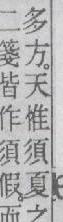 多方。天惟須夏之
二箋皆作須假。而